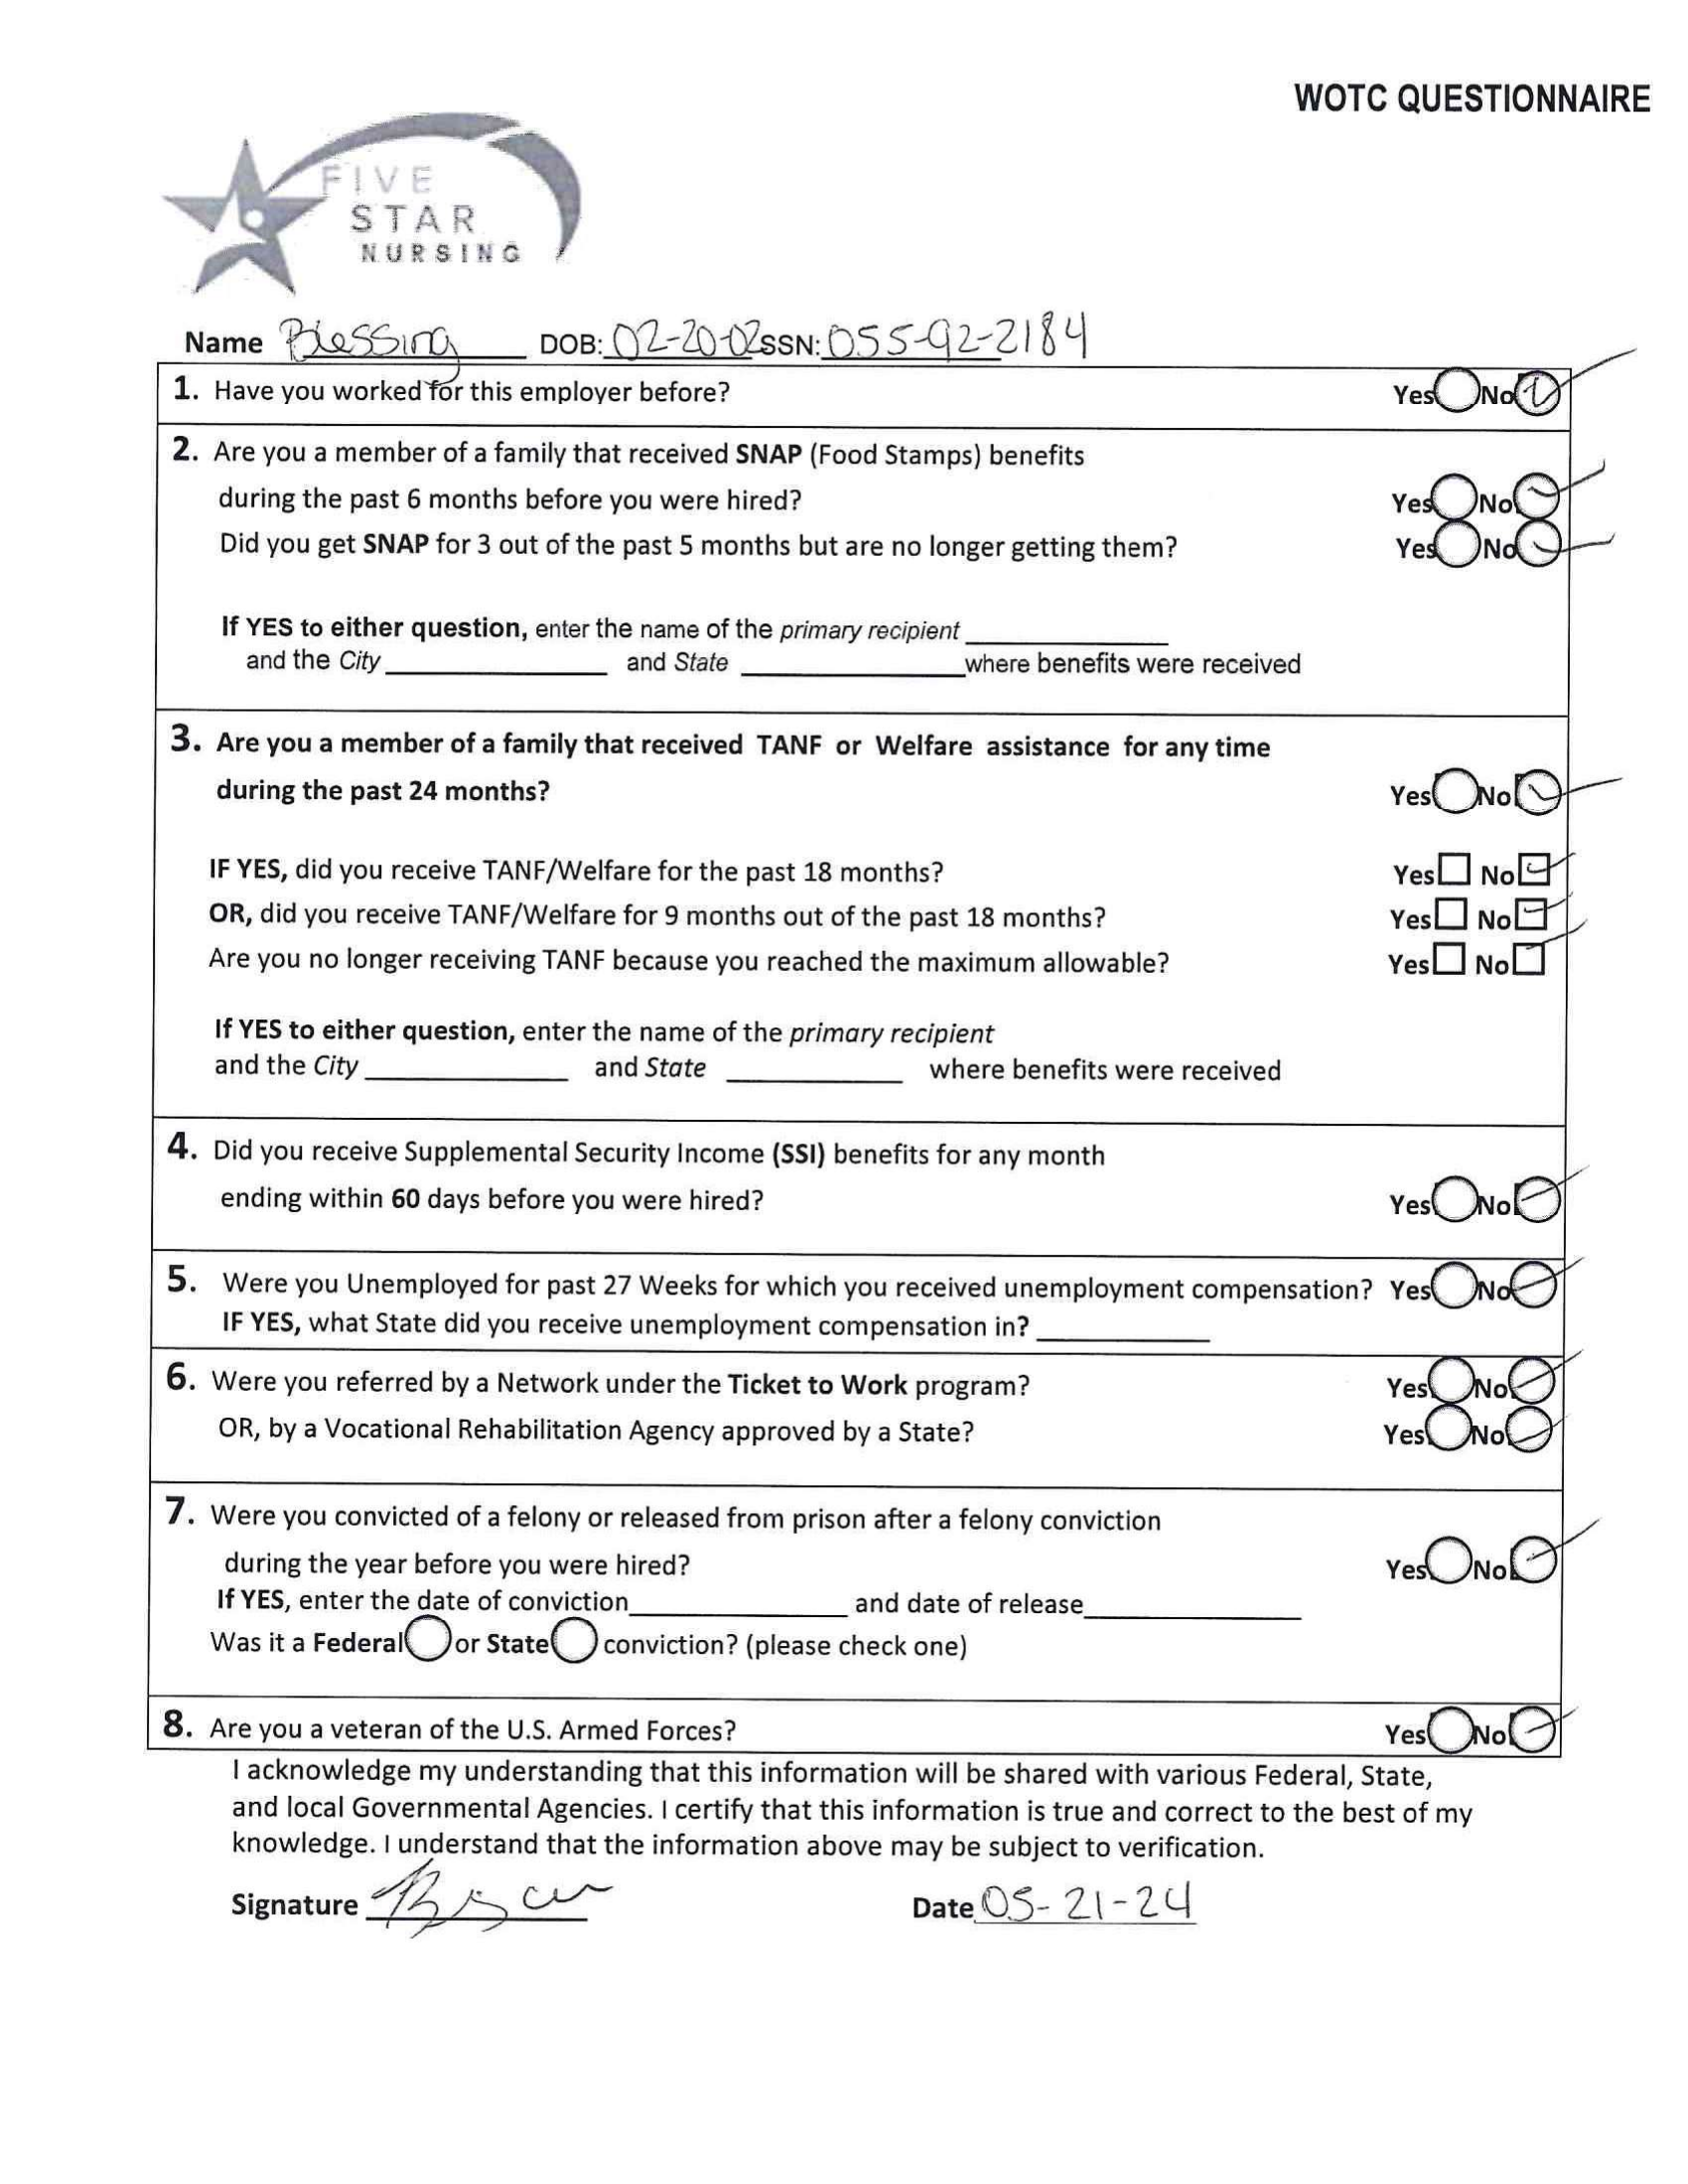 WOTC QUESTIONNAIRE
FIVE
STAR
NURSING
Name Blessing DOB: 02-20-02 SSN: 055-92-2184
1. Have you worked for this employer before? Yes No
2. Are you a member of a family that received SNAP (Food Stamps) benefits
during the past 6 months before you were hired? Yes No
Did you get SNAP for 3 out of the past 5 months but are no longer getting them? Yes No
If YES to either question, enter the name of the primary recipient
and the City and State where benefits were received
3. Are you a member of a family that received TANF or Welfare assistance for any time
during the past 24 months? Yes No
IF YES, did you receive TANF/Welfare for the past 18 months? Yes No
OR, did you receive TANF/Welfare for 9 months out of the past 18 months? Yes No
Are you no longer receiving TANF because you reached the maximum allowable? Yes No
If YES to either question, enter the name of the primary recipient
and the City and State where benefits were received
4. Did you receive Supplemental Security Income (SSI) benefits for any month
ending within 60 days before you were hired? Yes No
5. Were you Unemployed for past 27 Weeks for which you received unemployment compensation? Yes No
IF YES, what State did you receive unemployment compensation in?
6. Were you referred by a Network under the Ticket to Work program? Yes No
OR, by a Vocational Rehabilitation Agency approved by a State? Yes No
7. Were you convicted of a felony or released from prison after a felony conviction
during the year before you were hired? Yes No
If YES, enter the date of conviction and date of release
Was it a Federal or State conviction? (please check one)
8. Are you a veteran of the U.S. Armed Forces? Yes No
I acknowledge my understanding that this information will be shared with various Federal, State,
and local Governmental Agencies. I certify that this information is true and correct to the best of my
knowledge. I understand that the information above may be subject to verification.
Signature Date 05-21-24